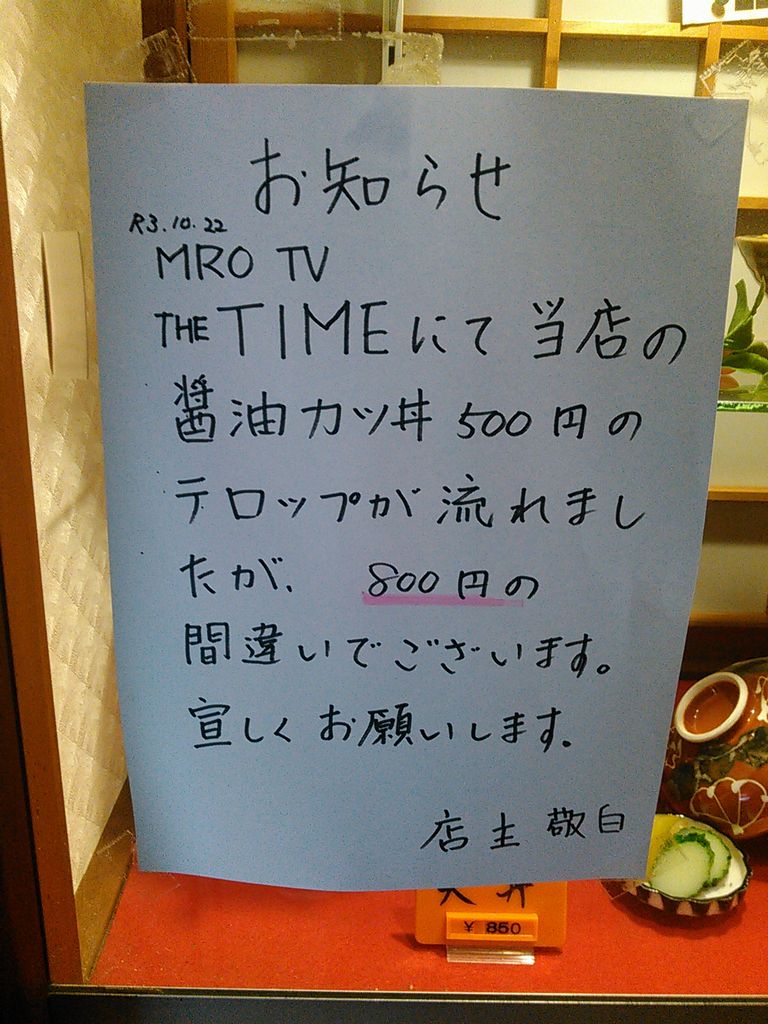 お知らせ
R3.10.22
MRO TV
THE TIMEにて当店の
醤油カツ丼500円の
テロップが流れまし
たが、800円の
間違いでございます。
宣しくお願いします。
店主 敬白
¥850